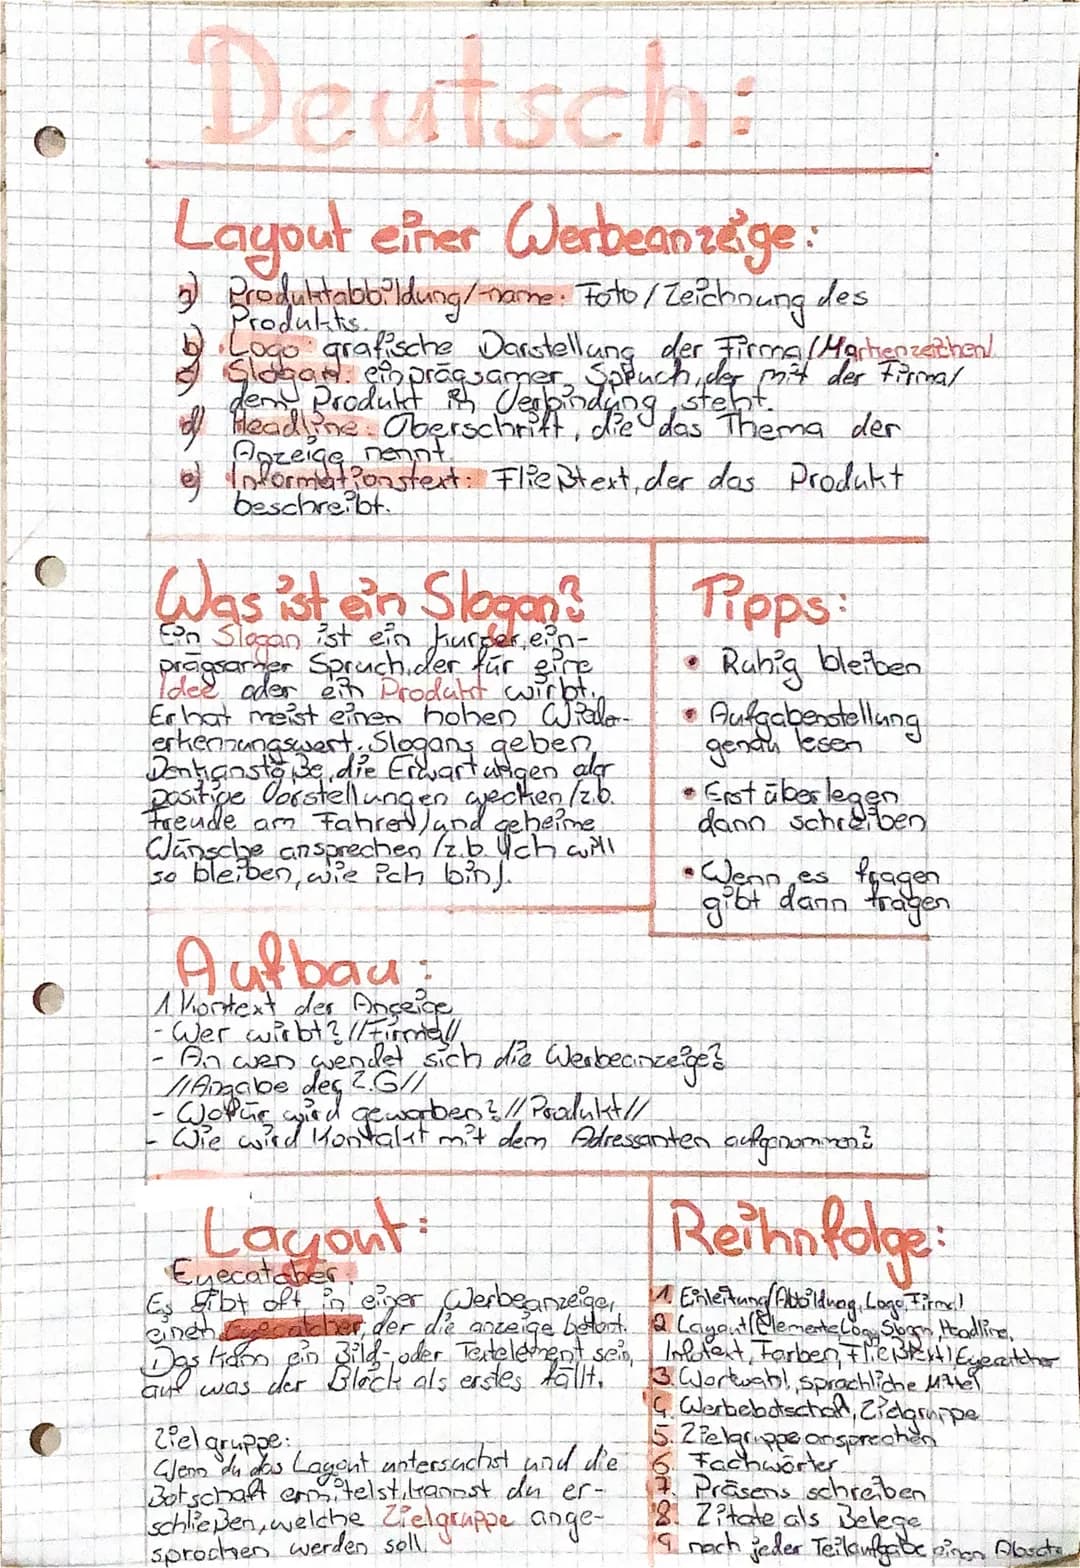 Deutsch:
Layout einer Werbeanzeige:
a) Produktabbildung/-name: Foto/Zeichnung des
Produkts.
b) Logo: grafische Darstellung der Firma/Markenzeichen/
c) Slogan: einprägsamer Spruch, der mit der Firma/
dem Produkt in Verbindung steht.
d) Headline: Überschrift, die das Thema der
Anzeige nennt.
e) Informationstext: Fließtext, der das Produkt
beschreibt.
Was ist ein Slogan?
Ein Slogan ist ein kurzer, ein-
prägsamer Spruch, der für eine
Idee oder ein Produkt wirbt.
Er hat meist einen hohen Wieder-
erkennungswert. Slogans geben
Denkanstöße, die Erwartungen oder
positive Vorstellungen wecken (z.b.
Freude am Fahren) und geheime
Wünsche ansprechen (z.b. Ich will
so bleiben, wie ich bin).
Tipps:
• Ruhig bleiben
• Aufgabenstellung
genau lesen
• Erst überlegen
dann schreiben
• Wenn es fragen
gibt dann fragen
Aufbau:
1. Kontext der Anzeige
- Wer wirbt? //Firma//
- An wen wendet sich die Werbeanzeige?
//Angabe der Z.G//
- Wofür wird geworben? //Produkt//
- Wie wird Kontakt mit dem Adressanten aufgenommen?
Layout:
Eyecatcher:
Es gibt oft in einer Werbeanzeige,
einen Eyecatcher, der die anzeige betont.
Das kann ein Bild- oder Textelement sein,
auf was der Blick als erstes fällt.
Zielgruppe:
Wenn du das Layout untersuchst und die
Botschaft ermitelst, kannst du er-
schließen, welche Zielgruppe ange-
sprochen werden soll.
Reihnfolge:
1 Einleitung(Abbildung, Logo, Firma)
2 Layout(Elemente Logo, Slogan, Headline,
Infotext, Farben, Fließtext) Eyecatcher
3. Wortwahl, sprachliche Mittel
4. Werbebotschaft, Zielgruppe
5. Zielgruppe ansprechen
6. Fachwörter
7. Präsens schreiben
8. Zitate als Belege
9 nach jeder Teilaufgabe einen Absatz